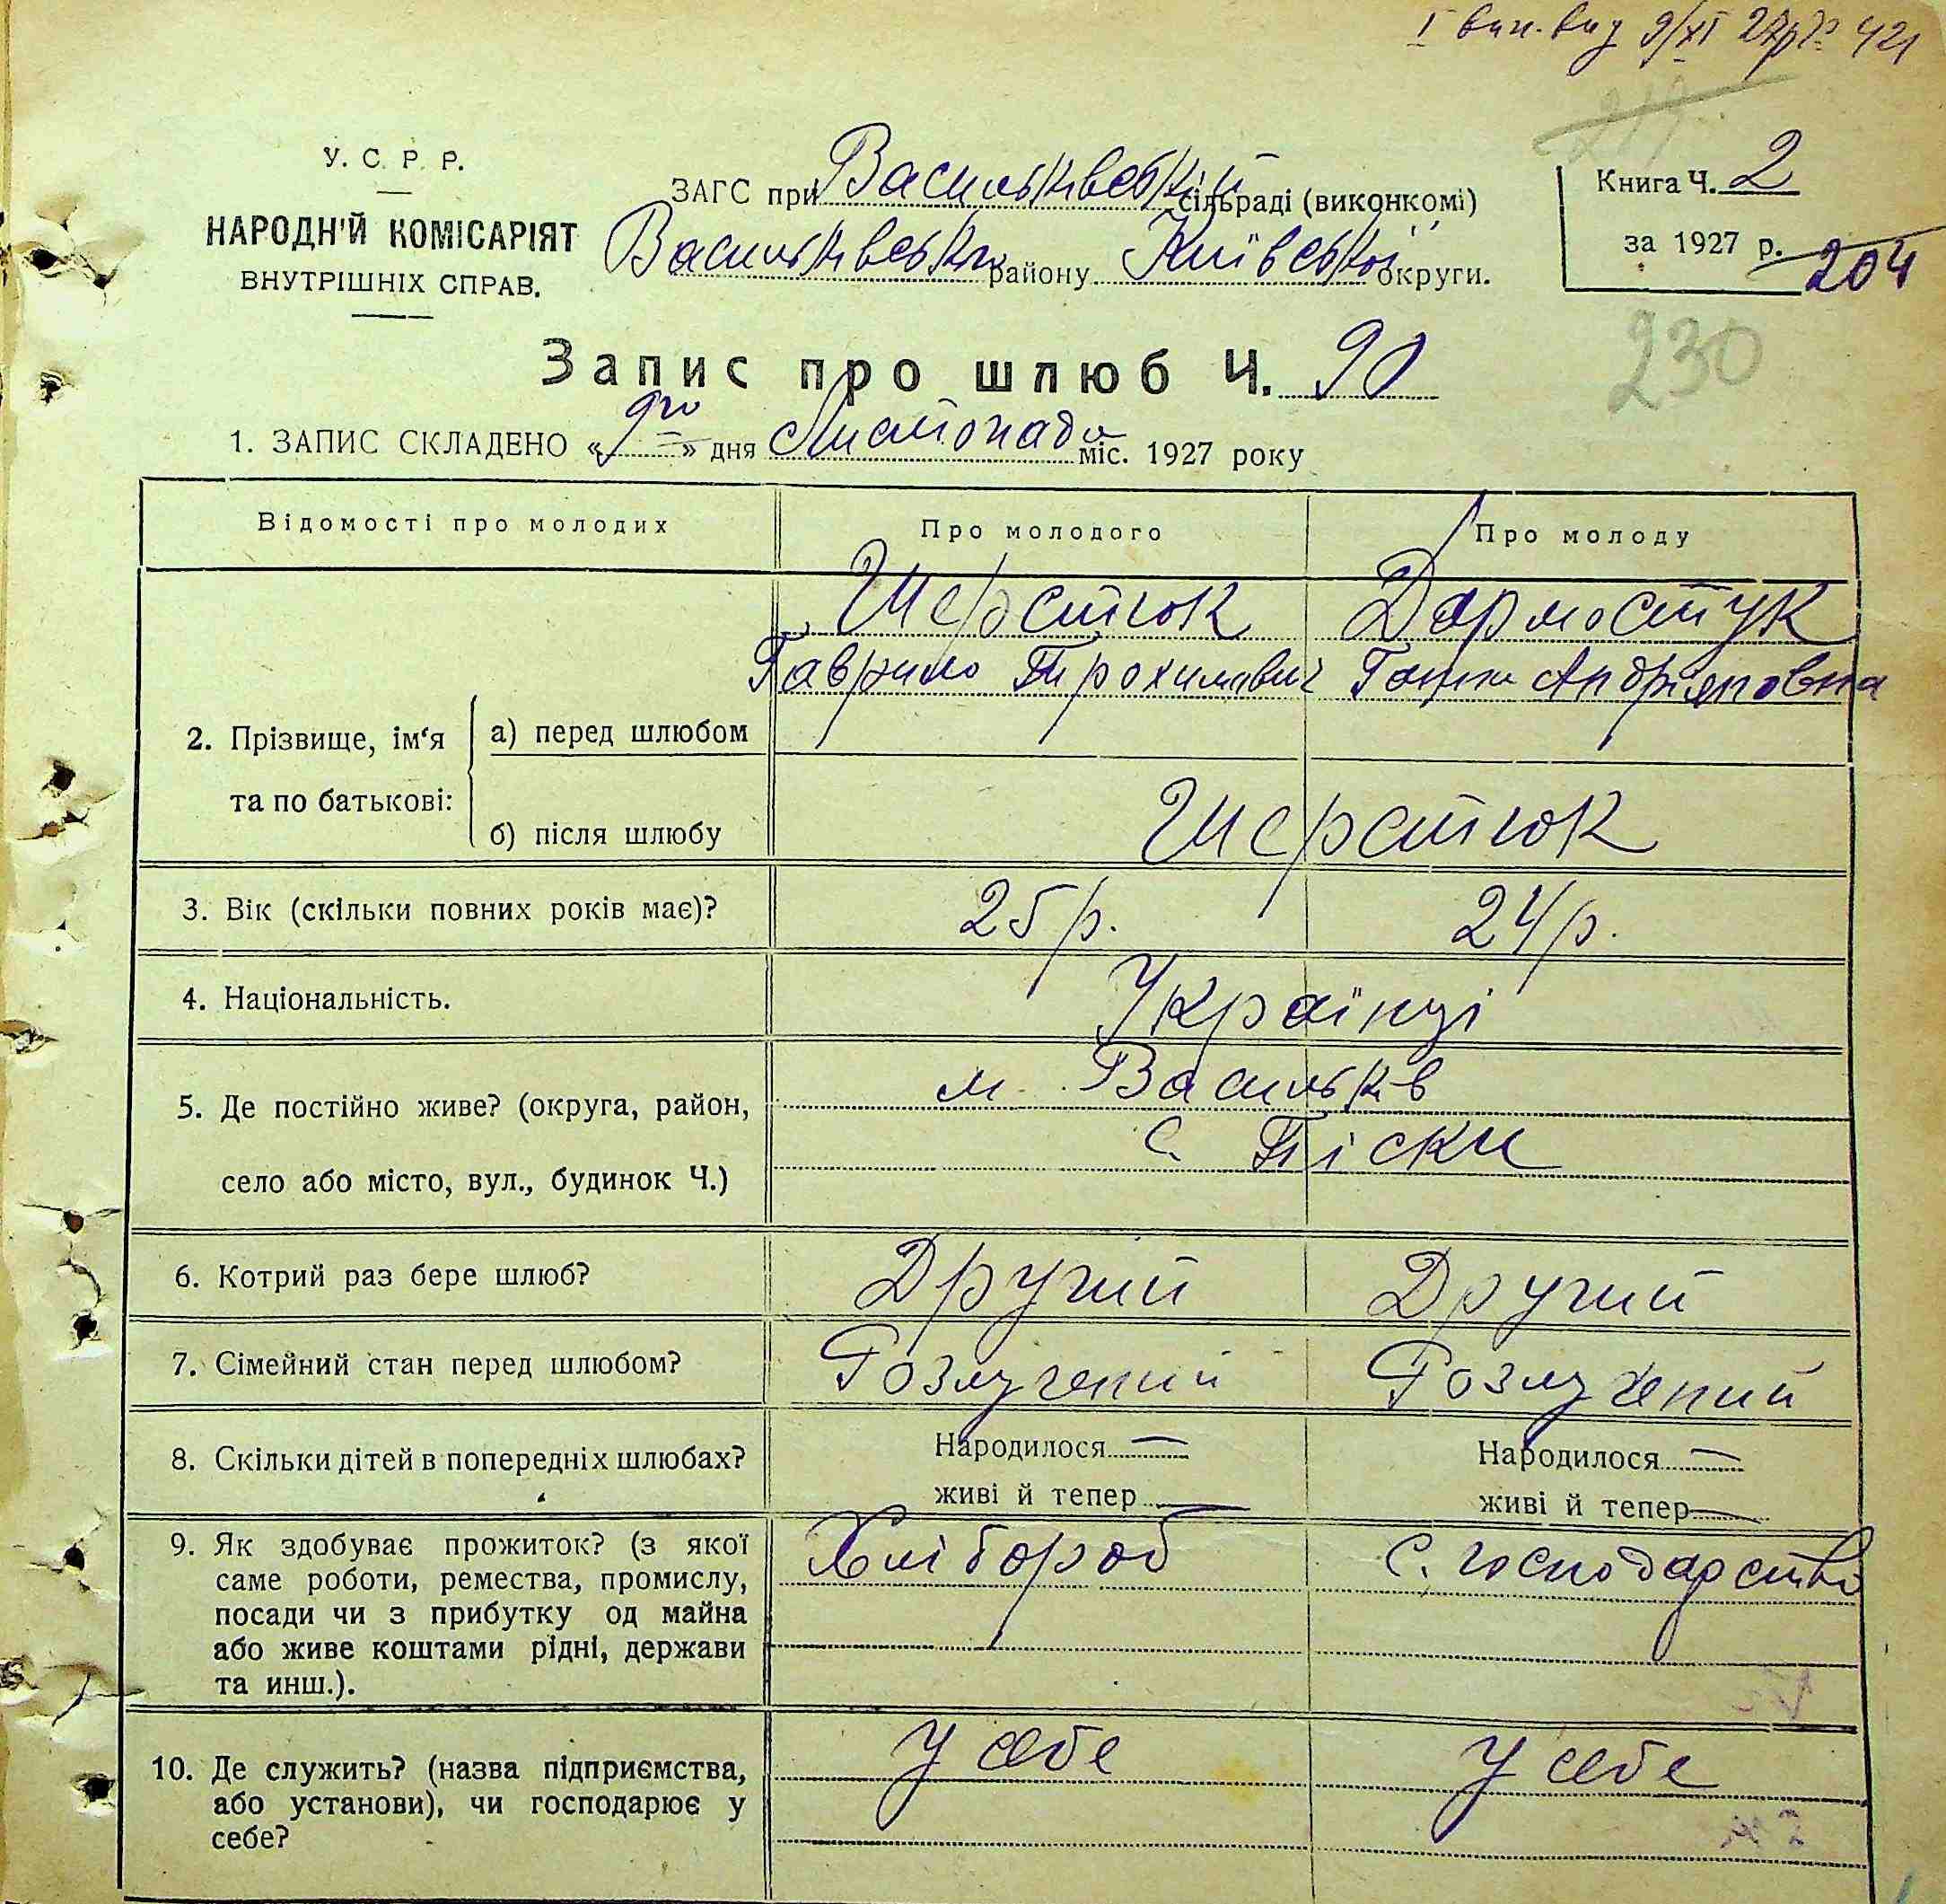 І вип. вид 9/XI 27р № 421
У. С. Р. Р.
НАРОДН'Й КОМІСАРІЯТ
ВНУТРІШНІХ СПРАВ.
ЗАГС при Васильківській сільраді (виконкомі)
Васильківськ району Київської округи.
Книга Ч. 2
за 1927 р.
204
230
Запис про шлюб Ч. 90
1. ЗАПИС СКЛАДЕНО «9го» дня Листопада міс. 1927 року
Відомості про молодих Про молодого Про молоду
2. Прізвище, ім‘я та по батькові:
а) перед шлюбом
Шерстюк
Гаврило Трохимович
Дармостук
Ганна Андріяновна
б) після шлюбу
Шерстюк
3. Вік (скільки повних років має)? 25 р. 24 р.
4. Національність. Українці
5. Де постійно живе? (округа, район,
село або місто, вул., будинок Ч.)
м. Васильків
с. Піски
6. Котрий раз бере шлюб? Другий Другий
7. Сімейний стан перед шлюбом? Розлучений Розлучений
8. Скільки дітей в попередніх шлюбах?
Народилося —
живі й тепер —
Народилося —
живі й тепер —
9. Як здобуває прожиток? (з якої
саме роботи, ремества, промислу,
посади чи з прибутку од майна
або живе коштами рідні, держави
та инш.).
Хлібороб
С. господарство
10. Де служить? (назва підприємства,
або установи), чи господарює у
себе?
У себе
У себе